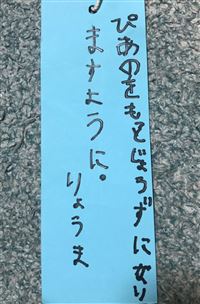 ぴあのをもとじょうずになり
ますように。
りょうま